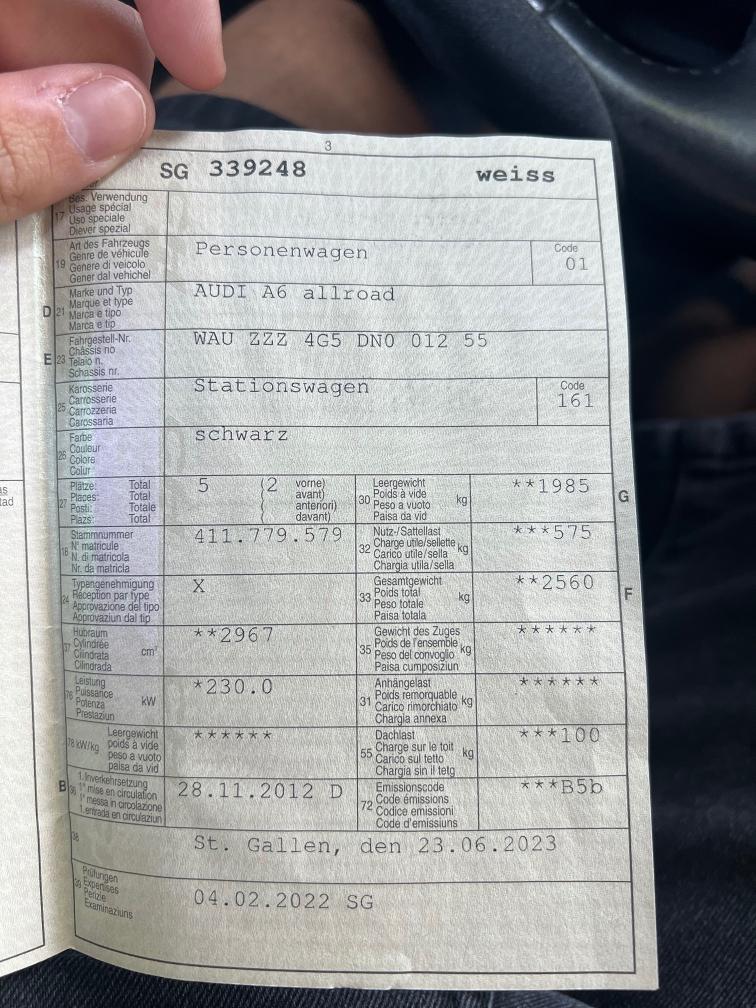 3
SG 339248 weiss
17 Bes. Verwendung
Usage spécial
Uso speciale
Diever spezial
19 Art des Fahrzeugs
Genre de véhicule
Genere di veicolo
Gener dal vehichel
Personenwagen
Code
01
D 21 Marke und Typ
Marque et type
Marca e tipo
Marca e tip
AUDI A6 allroad
E 23 Fahrgestell-Nr.
Châssis no
Telaio n.
Schassis nr.
WAU ZZZ 4G5 DN0 012 55
25 Karosserie
Carrosserie
Carrozzeria
Carossaria
Stationswagen
Code
161
26 Farbe
Couleur
Colore
Colur
schwarz
27 Plätze: Total
Places: Total
Posti: Totale
Plazs: Total
5 (2 vorne)
avant)
anteriori)
davant)
30 Leergewicht
Poids à vide
Peso a vuoto
Paisa da vid
kg
**1985
G
18 Stammnummer
N° matricule
N. di matricola
Nr. da matricla
411.779.579
32 Nutz-/Sattellast
Charge utile/sellette
Carico utile/sella
Chargia utila/sella
kg
***575
24 Typengenehmigung
Réception par type
Approvazione del tipo
Approvaziun dal tip
X
33 Gesamtgewicht
Poids total
Peso totale
Paisa totala
kg
**2560
F
37 Hubraum
Cylindrée
Cilindrata
Cilindrada
cm³
**2967
35 Gewicht des Zuges
Poids de l'ensemble
Peso del convoglio
Paisa cumposiziun
kg
******
76 Leistung
Puissance
Potenza
Prestaziun
kW
*230.0
31 Anhängelast
Poids remorquable
Carico rimorchiato
Chargia annexa
kg
******
78 kW/kg Leergewicht
poids à vide
peso a vuoto
paisa da vid
******
55 Dachlast
Charge sur le toit
Carico sul tetto
Chargia sin il tetg
kg
***100
B 36 1. Inverkehrsetzung
1re mise en circulation
1a messa in circolazione
1. entrada en circulaziun
28.11.2012 D
72 Emissionscode
Code émissions
Codice emissioni
Code d'emissiuns
***B5b
38
St. Gallen, den 23.06.2023
39 Prüfungen
Expertises
Perizie
Examinaziuns
04.02.2022 SG
as
tad